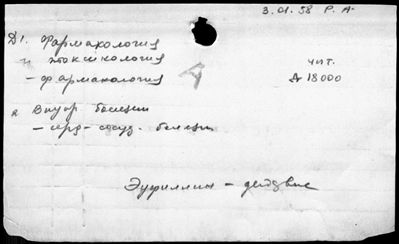 3.01.58 Р. А.
Д1. Фармакология
и токсикология
чит.
– фармакология
А 18000
2 Внутр болезни
– серд-сосуд. болезни
Эуфиллин – действие